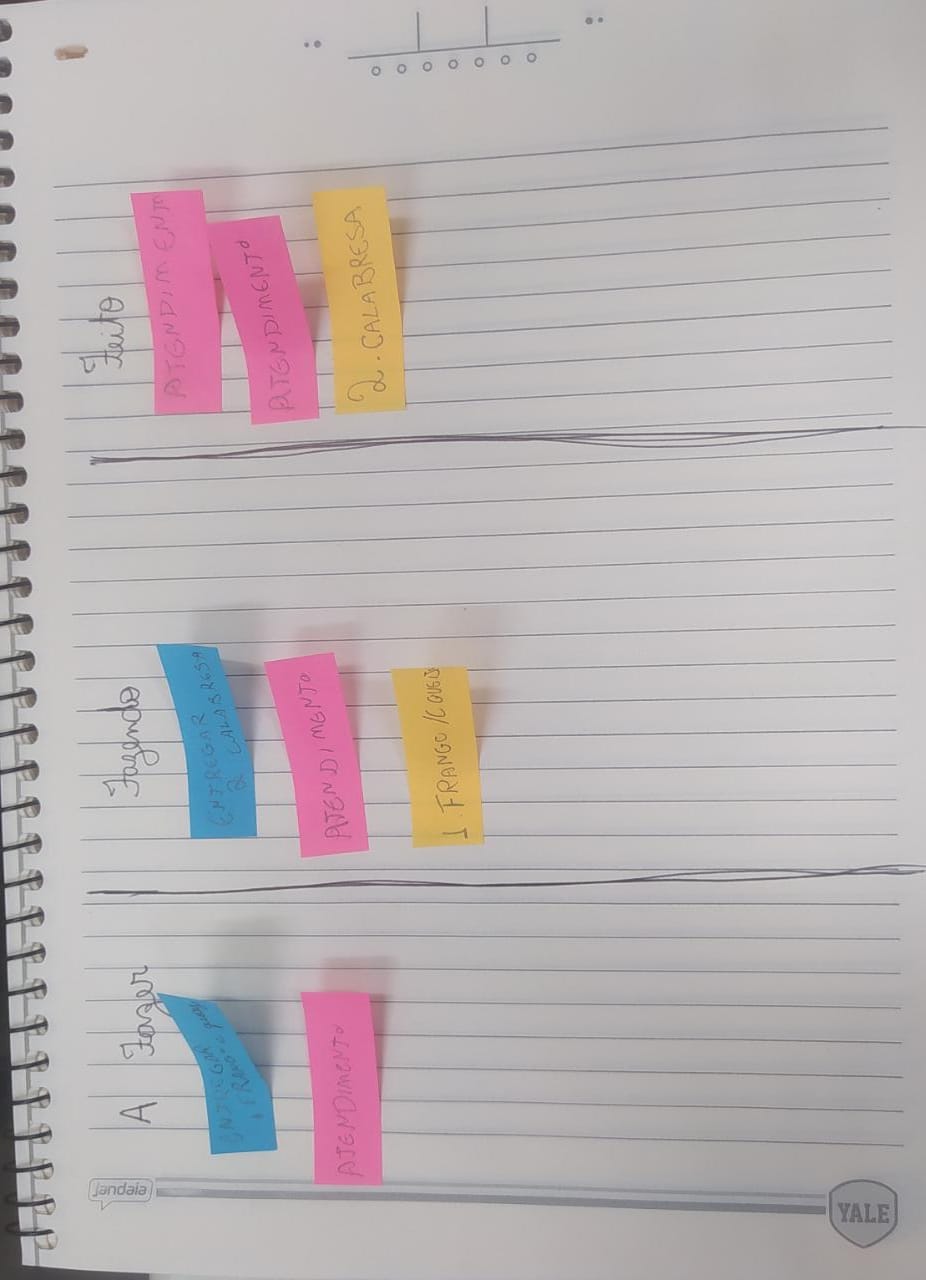 A Fazer
ENTREGAR
1 FRANGO
ATENDIMENTO
Fazendo
ENTREGAR
2 CALABRESA
ATENDIMENTO
1. FRANGO/
Feito
ATENDIMENT
ATENDIMENTO
2. CALABRESA
jandaia
YALE